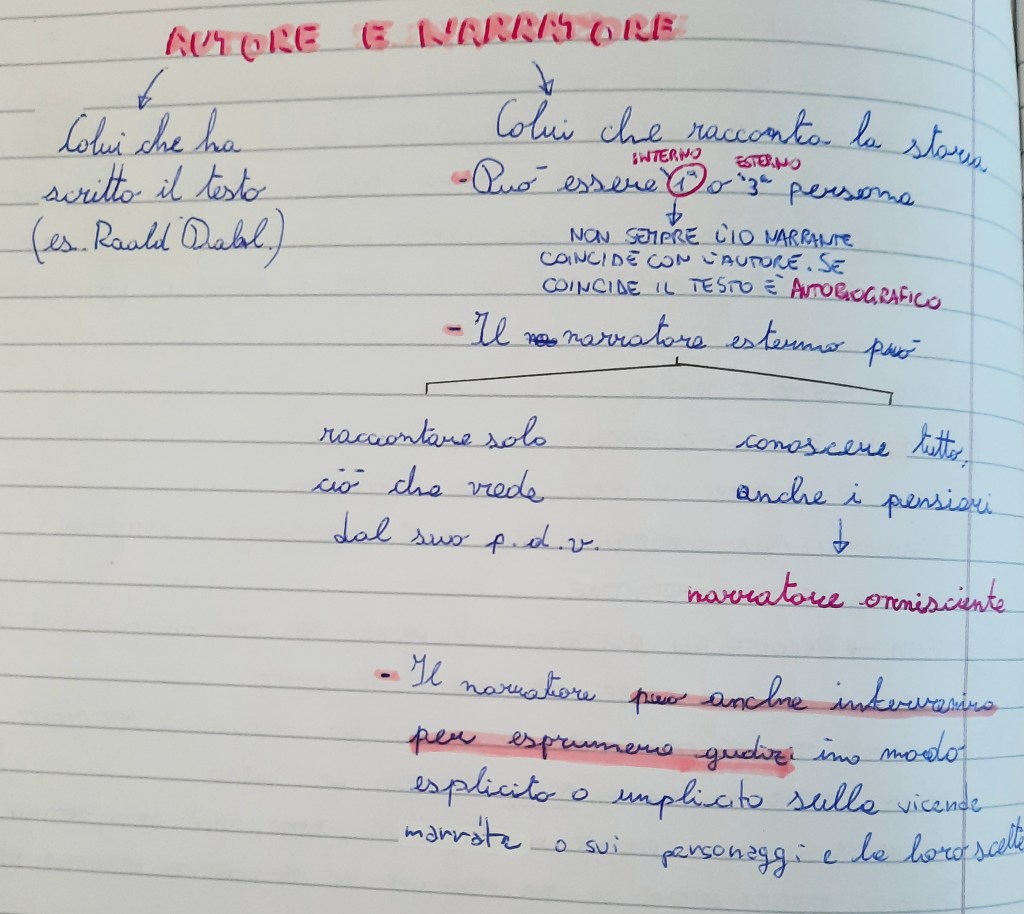 AUTORE E NARRATORE
Colui che ha
scritto il testo
(es. Raald Dahl.)
Colui che racconta la storia
INTERNO ESTERNO
- Può essere "1ª o "3ª persona
NON SEMPRE L'IO NARRANTE
COINCIDE CON L'AUTORE. SE
COINCIDE IL TESTO È AUTOBIOGRAFICO
- Il narratore esterno può
raccontare solo
ciò che vede
dal suo p.d.v.
conoscere tutto,
anche i pensieri
narratore onnisciente
- Il narratore può anche intervenire
per esprimere giudizi in modo
esplicito o implicito sulle vicende
narrate o sui personaggi e le loro scelte